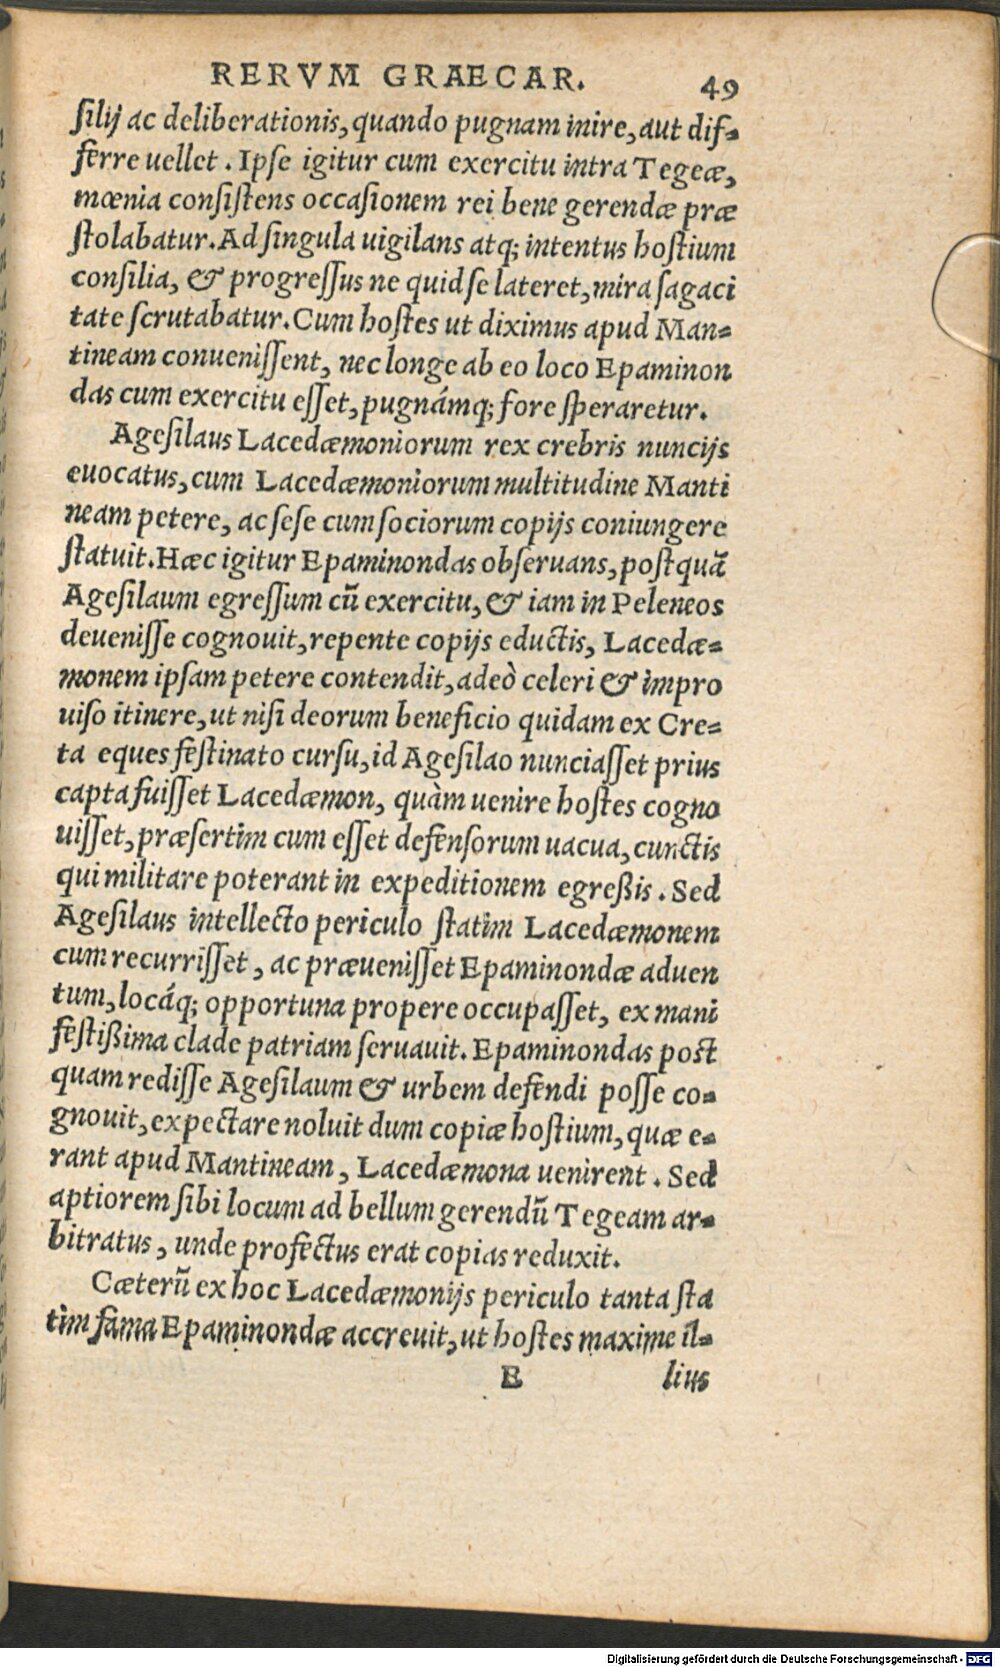 RERVM GRAECAR. 49
silij ac deliberationis, quando pugnam inire, aut dif-
ferre uellet. Ipse igitur cum exercitu intra Tegeæ,
mœnia consistens occasionem rei bene gerendæ præ
stolabatur. Ad singula uigilans atq; intentus hostium
consilia, & progressus ne quid se lateret, mira sagaci
tate scrutabatur. Cum hostes ut diximus apud Man-
tineam conuenissent, nec longe ab eo loco Epaminon
das cum exercitu esset, pugnámq; fore speraretur.
Agesilaus Lacedæmoniorum rex crebris nuncijs
euocatus, cum Lacedæmoniorum multitudine Manti
neam petere, ac sese cum sociorum copijs coniungere
statuit. Hæc igitur Epaminondas obseruans, postquã
Agesilaum egressum cũ exercitu, & iam in Peleneos
deuenisse cognouit, repente copijs eductis, Lacedæ-
monem ipsam petere contendit, adeò celeri & impro
uiso itinere, ut nisi deorum beneficio quidam ex Cre-
ta eques festinato cursu, id Agesilao nunciasset prius
capta fuisset Lacedæmon, quàm uenire hostes cogno
uisset, præsertim cum esset defensorum uacua, cunctis
qui militare poterant in expeditionem egreßis. Sed
Agesilaus intellecto periculo statim Lacedæmonem
cum recurrisset, ac præuenisset Epaminondæ aduen
tum, locáq; opportuna propere occupasset, ex mani
festißima clade patriam seruauit. Epaminondas post
quam redisse Agesilaum & urbem defendi posse co-
gnouit, expectare noluit dum copiæ hostium, quæ e-
rant apud Mantineam, Lacedæmona uenirent. Sed
aptiorem sibi locum ad bellum gerendũ Tegeam ar-
bitratus, unde profectus erat copias reduxit.
Cæterũ ex hoc Lacedæmonijs periculo tanta sta
tim fama Epaminondæ accreuit, ut hostes maxime il-
E lius
Digitalisierung gefördert durch die Deutsche Forschungsgemeinschaft - DFG